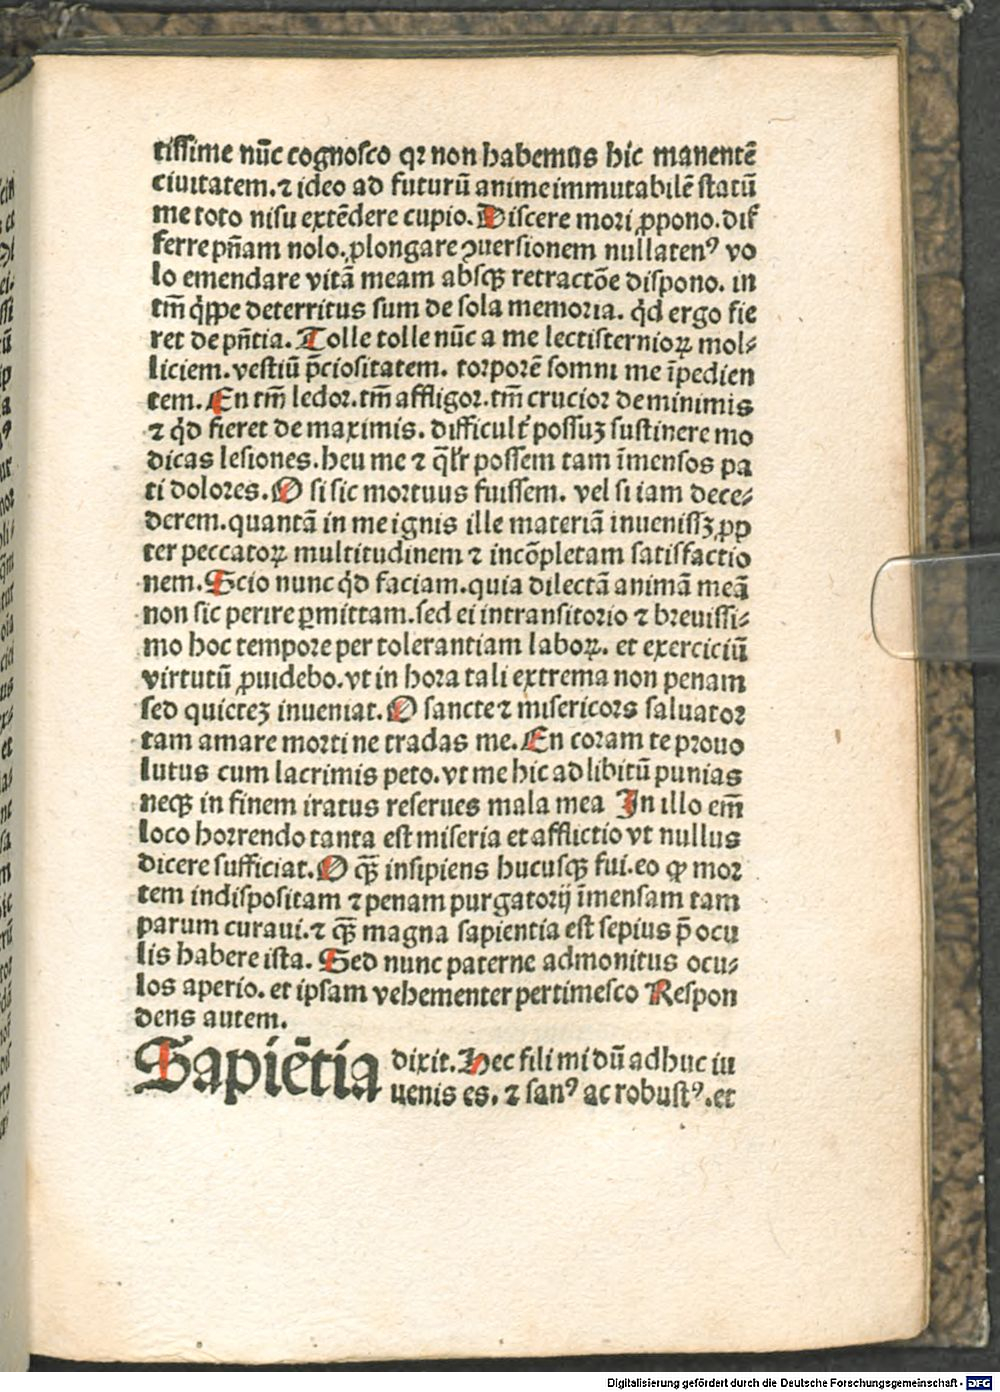 tissime nūc cognosco qꝛ non habemus hic manentē
ciuitatem. ⁊ ideo ad futurū anime immutabilē statū
me toto nisu extēdere cupio. Discere mori ꝓpono. dif
ferre pn̄am nolo. ꝓlongare ꝯuersionem nullatenꝰ vo
lo emendare vitā meam absqꝫ retractōe dispono. in
tm̄ q̇ppe deterritus sum de sola memoria. qd̓ ergo fie
ret de pn̄tia. Tolle tolle nūc a me lectisternioꝝ mol⸗
liciem. vestiū p̄ciositatem. torporē somni me īpedien
tem. En tm̄ ledor. tm̄ affligor. tm̄ crucior de minimis
⁊ qd̓ fieret de maximis. difficult᷑ possuꝫ sustinere mo
dicas lesiones. heu me ⁊ qͣlr possem tam īmensos pa
ti dolores. O si sic mortuus fuissem. vel si iam dece⸗
derem. quantā in me ignis ille materiā inuenissꝫ ꝓp
ter peccatoꝝ multitudinem ⁊ incōpletam satisfactio
nem. Scio nunc qd̓ faciam. quia dilectā animā meā
non sic perire ꝑmittam. sed ei in transitorio ⁊ breuissi⸗
mo hoc tempore per tolerantiam laboꝝ. et exerciciū
virtutū ꝓuidebo. vt in hora tali extrema non penam
sed quieteꝫ inueniat. O sancte ⁊ misericors saluator
tam amare morti ne tradas me. En coram te prouo
lutus cum lacrimis peto. vt me hic ad libitū punias
neqꝫ in finem iratus reserues mala mea In illo em̄
loco horrendo tanta est miseria et afflictio vt nullus
dicere sufficiat. O qꝫ̄ insipiens hucusqꝫ fui. eo ꝙ mor
tem indispositam ⁊ penam purgatorij īmensam tam
parum curaui. ⁊ qꝫ̄ magna sapientia est sepius p̄ ocu
lis habere ista. Sed nunc paterne admonitus ocu⸗
los aperio. et ipsam vehementer pertimesco Respon
dens autem.
Sapiētia dixit. Hec fili mi dū adhuc iu
uenis es. ⁊ sanꝰ ac robustꝰ. et
Digitalisierung gefördert durch die Deutsche Forschungsgemeinschaft - DFG